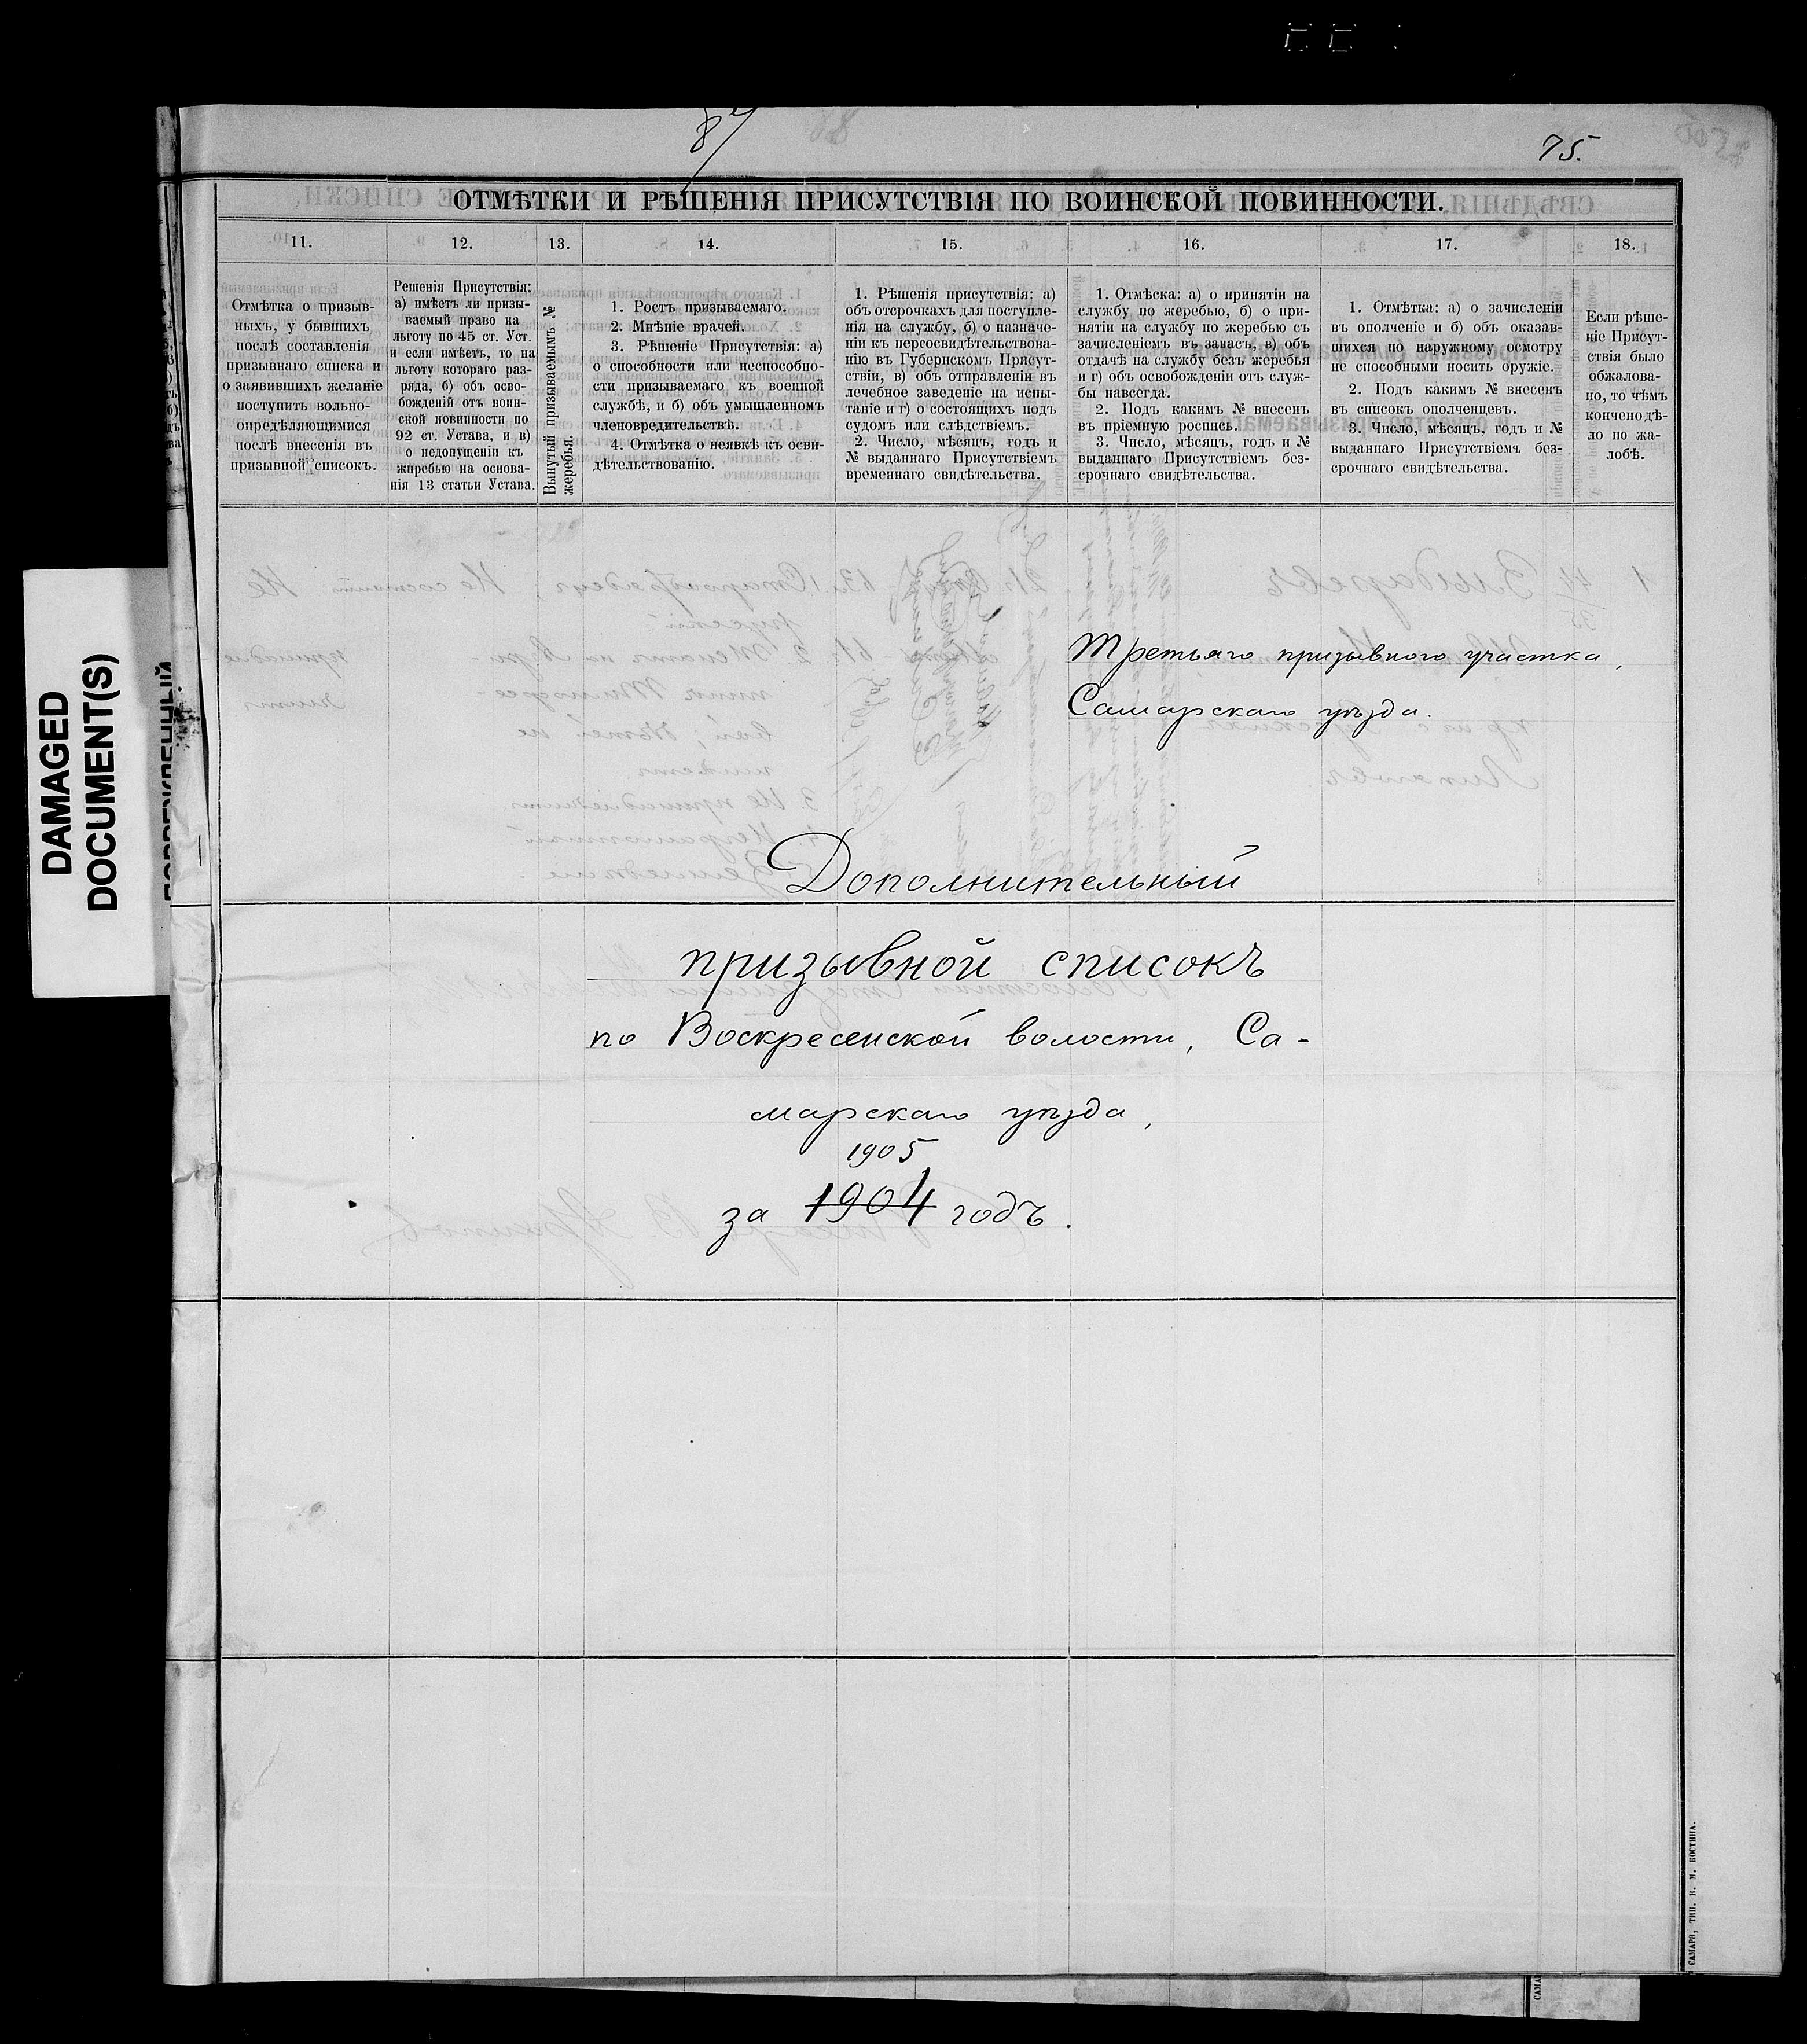 87
75.
ОТМѢТКИ И РѢШЕНІЯ ПРИСУТСТВІЯ ПО ВОИНСКОЙ ПОВИННОСТИ.
11. 12. 13. 14. 15. 16. 17. 18.
Отмѣтка о призыв-
ныхъ, у бывшихъ
послѣ составленія
призывнаго списка и
о заявившихъ желаніе
поступить вольно-
опредѣляющимися
послѣ внесенія въ
призывной списокъ.
Решенія Присутствія:
а) имѣетъ ли призы-
ваемый право на
льготу по 45 ст. Уст.
и если имѣетъ, то на
льготу котораго раз-
ряда, б) объ осво-
божденіи отъ воин-
ской повинности по
92 ст. Устава, и в)
о недопущеніи къ
жиребью на основа-
нія 13 статьи Устава.
Вынутый призываемымъ №
жеребья.
1. Ростъ призываемаго.
2. Мнѣніе врачей.
3. Рѣшеніе Присутствія: а)
о способности или неспособно-
сти призываемаго къ военной
службѣ, и б) объ умышленномъ
членовредительствѣ.
4. Отмѣтка о неявкѣ къ осви-
дѣтельствованію.
1. Рѣшенія присутствія: а)
объ отсрочкахъ для поступле-
нія на службу, б) о назначе-
ніи къ переосвидѣтельствова-
нію въ Губернскомъ Присут-
ствіи, в) объ отправленіи въ
лечебное заведеніе на испы-
таніе и г) о состоящихъ подъ
судомъ или слѣдствіемъ.
2. Число, мѣсяцъ, годъ и
№ выданнаго Присутствіемъ
временнаго свидѣтельства.
1. Отмѣска: а) о принятіи на
службу по жеребью, б) о при-
нятіи на службу по жеребью съ
зачисленіемъ въ запасъ, в) объ
отдачѣ на службу безъ жеребья
и г) объ освобожденіи отъ служ-
бы навсегда.
2. Подъ какимъ № внесенъ
въ пріемную роспись.
3. Число, мѣсяцъ, годъ и №
выданнаго Присутствіемъ без-
срочнаго свидѣтельства.
1. Отмѣтка: а) о зачисленіи
въ ополченіе и б) объ оказав-
шихся по наружному осмотру
не способными носить оружіе.
2. Подъ какимъ № внесенъ
въ списокъ ополченцевъ.
3. Число, мѣсяцъ, годъ и №
выданнаго Присутствіемъ без-
срочнаго свидѣтельства.
Если рѣше-
ніе Присут-
ствія было
обжалова-
но, то чѣмъ
кончено дѣ-
ло по жа-
лобѣ.
DAMAGED
DOCUMENT(S)
Третьяго призывного участка,
Самарскаго уѣзда.
Дополнительный
призывной списокъ
по Воскресенской волости, Са-
марскаго уѣзда,
1905
за 1904 годъ.
САМАРА, ТИП. Н. М. КОСТИНА.